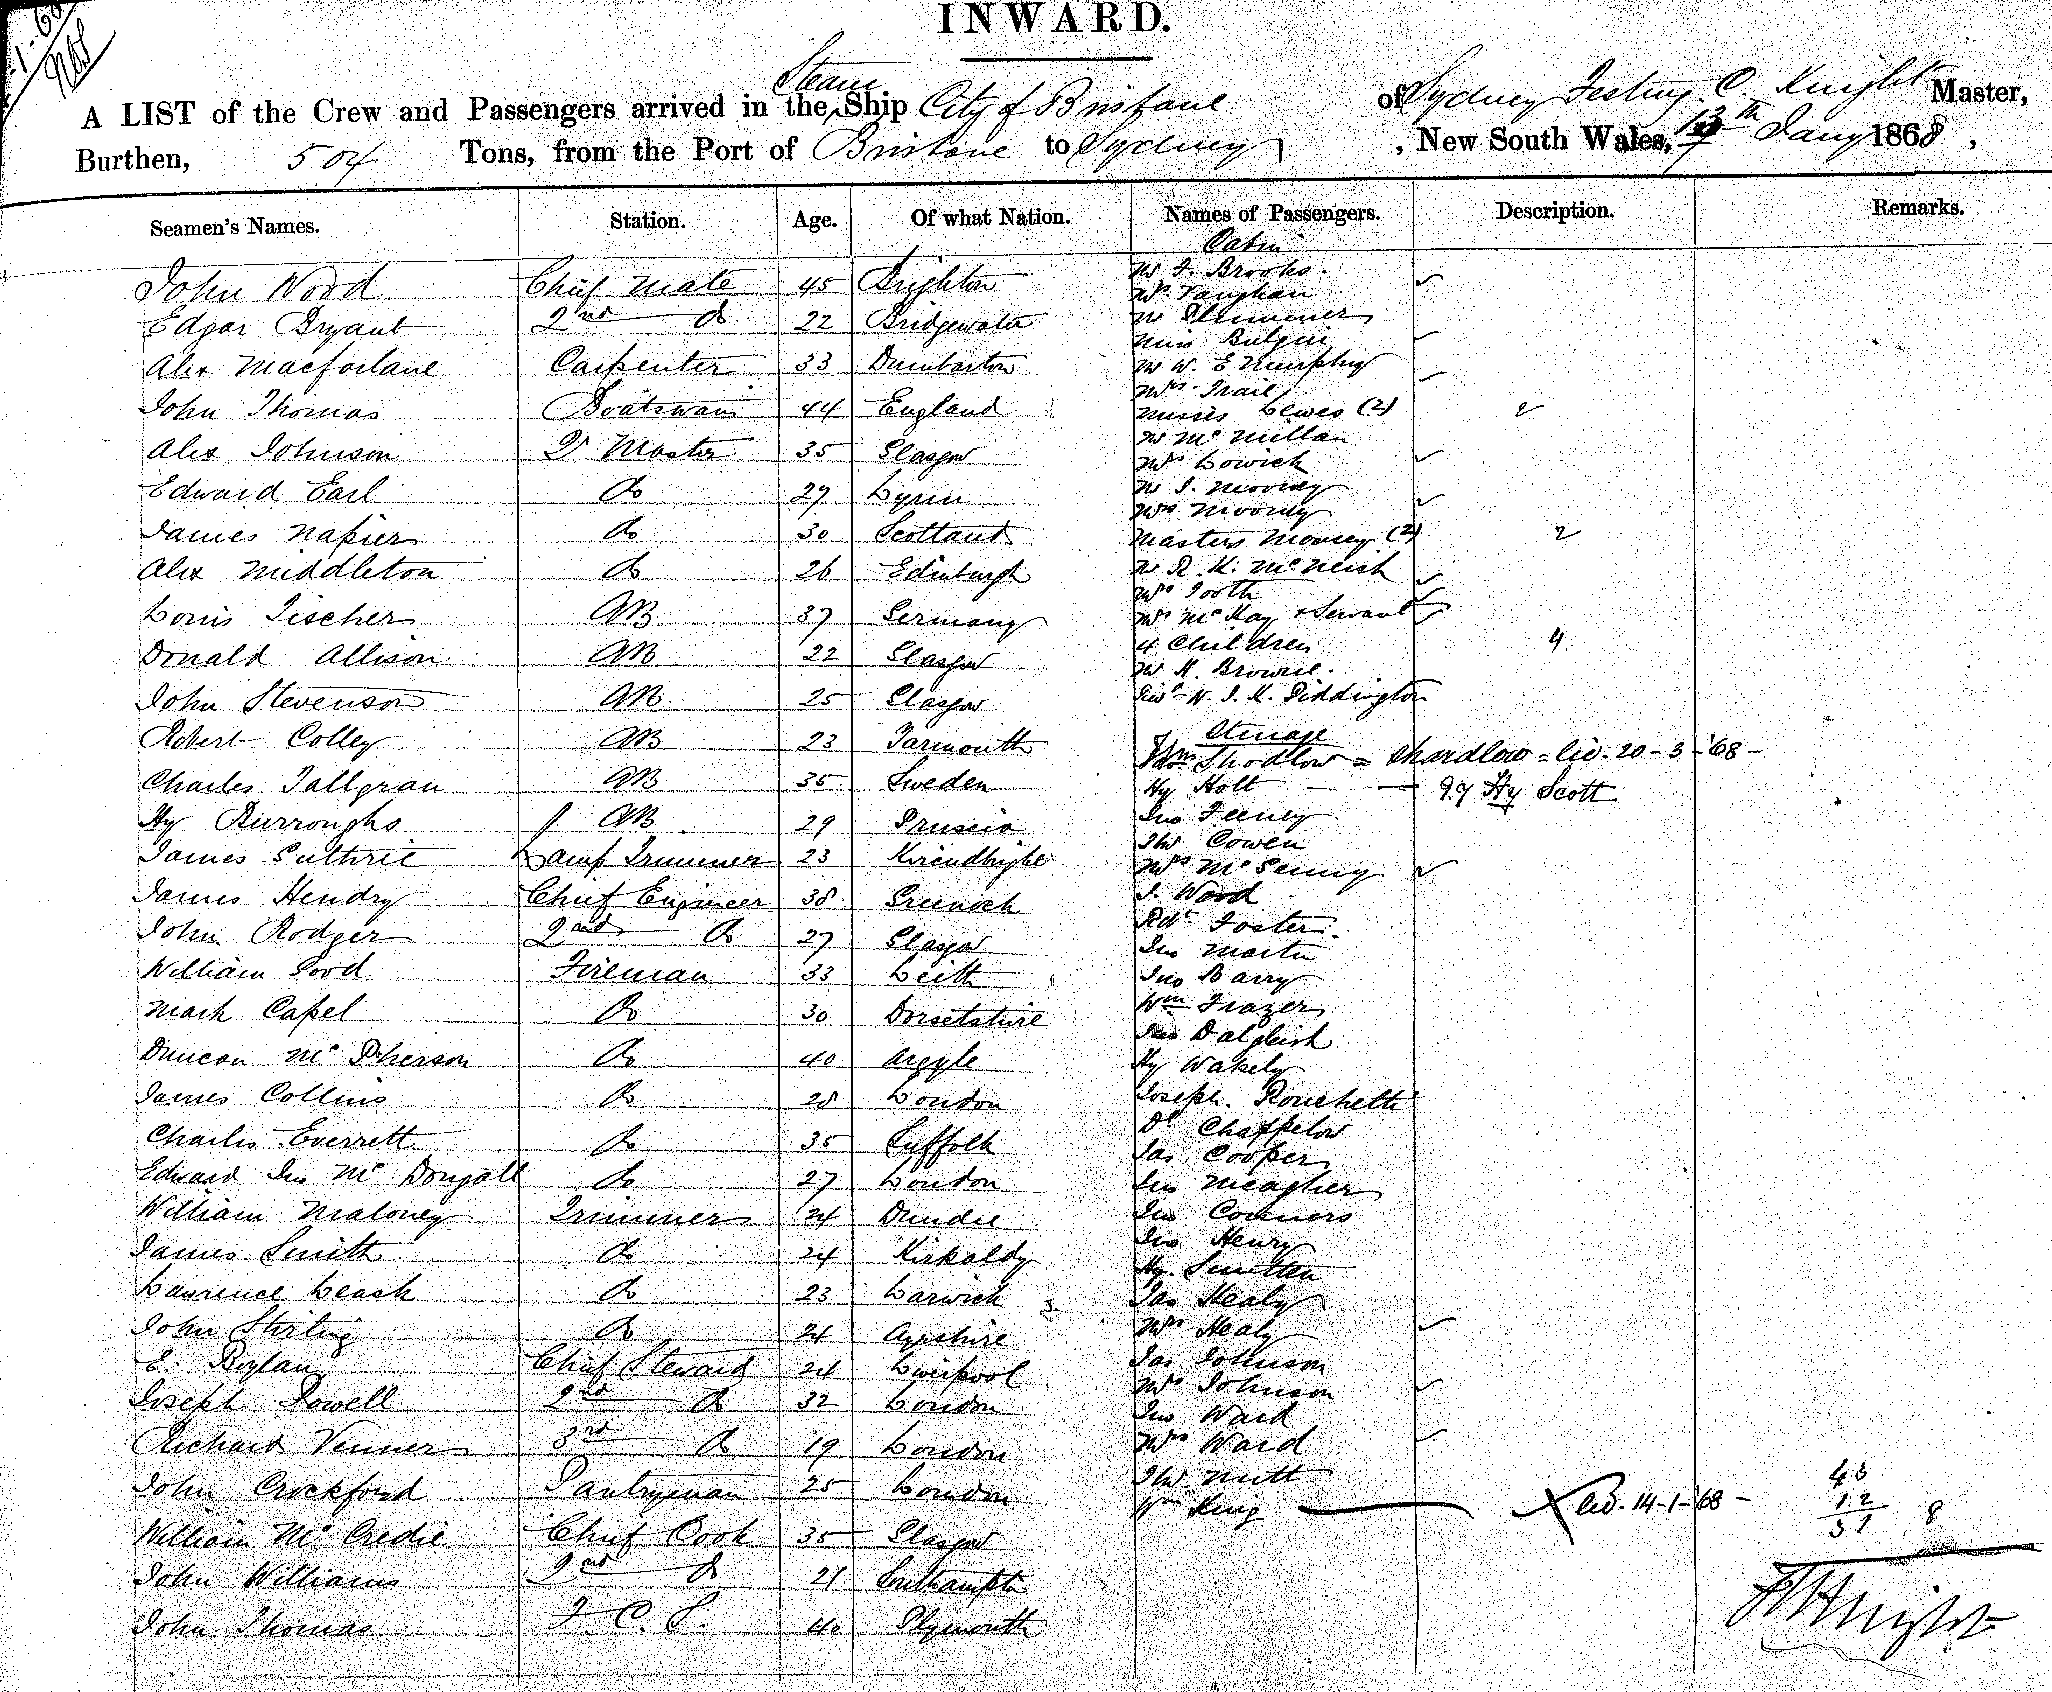 INWARD.
A LIST of the Crew and Passengers arrived in the Steam Ship City of Brisbane of Sydney C. Knight Master,
Burthen, 504 Tons, from the Port of Brisbane to Sydney, New South Wales, 13th Jany 1868,
Seamen's Names. Station. Age. Of what Nation. Names of Passengers. Description. Remarks.
John Wood Chief Mate 45 Brighton
Edgar Bryant 2nd Do 22 Bridgewater
Alex Macfarlane Carpenter 33 Dumbarton
John Thomas Boatswain 44 England
Alex Johnson Qr Master 35 Glasgow
Edward Earl Do 29 Lynn
James Napier Do 30 Scotland
Alex Middleton Do 26 Edinburgh
Louis Fischer AB 37 Germany
Donald Allison AB 22 Glasgow
John Stevenson AB 25 Glasgow
Robert Colley AB 23 Yarmouth
Charles Tallgran AB 35 Sweden
Hy Burroughs AB 29 Pruscia
James Guthrie Lamp Trimmer 23
James Hendry Chief Engineer 38 Greenock
John Rodger 2nd Do 27 Glasgow
William Good Fireman 33 Leith
Mark Capel Do 30 Dorsetshire
Duncan McPherson Do 40 Argyle
James Collins Do 28 London
Charles Everrett Do 35 Suffolk
Edward Jno McDougall Do 27 London
William Maloney Trimmer 24 Dundee
James Smith Do 24 Kirkaldy
Laurence Leask Do 23 Larwick
John Stirling Do 24 Ayrshire
E. Boylan Chief Steward 24 Liverpool
Joseph Powell 2nd Do 32 London
Richard Venner 3rd Do 19 London
John Crockford Pantryman 25 London
William McCredie Chief Cook 35 Glasgow
John Williams 2nd Do 21 Southampton
John Thomas F. C. S. 40 Plymouth
Cabin
Mr J. Brooks
Mrs Vaughan
Mr Plummer
Miss Bulgin
Mr W. E Murphy
Mrs Trail
Misses Lewes (2) 2
Mr McMillan
Mrs Lowick
Mr J. Mooney
Mrs Mooney
Masters Mooney (2) 2
Mr R. K. McNeish
Mrs Tooth
Mrs McKay + Servant
4 Children 4
Mr H. Browne
W. J. K. Piddington
Steerage
Thos Shodlow = Shardlow = liv. 20-3-'68-
Hy Holt - 97 Hy Scott
Jno Feeney
Thos Cowen
Mrs McGenniy
J. Wood
Rdt Foster
Jno Martin
Jno Barry
Wm Frazer
Jas Dalgleish
Hy Wakely
Joseph Rouchetti
Dl Chappelow
Jas Cooper
Jno Meagher
Jno Connors
Jno Henry
Hy Smitten
Jas Healy
Mrs Healy
Jas Johnson
Mrs Johnson
Jno Ward
Mrs Ward
Thos Nutt
Wm King X liv. 14-1-'68-
12
8
Knight